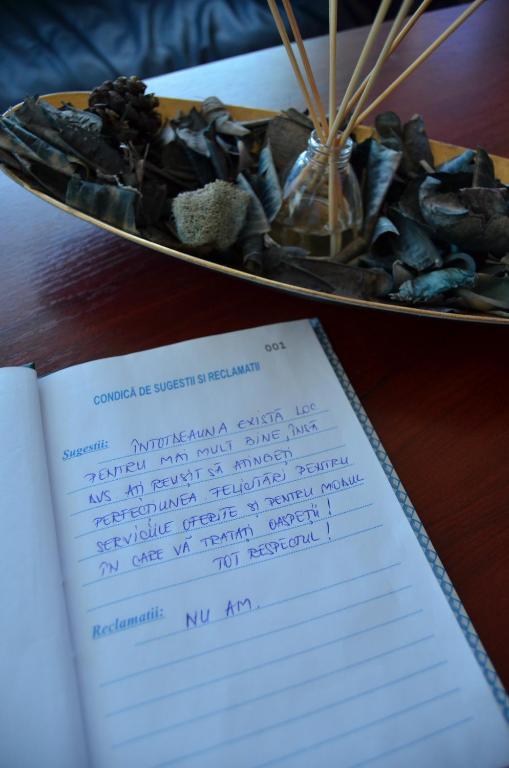 001
CONDICĂ DE SUGESTII SI RECLAMATII
Sugestii: ÎNTOTDEAUNA EXISTĂ LOC
PENTRU MAI MULT BINE, ÎNSĂ
DVS AȚI REUȘIT SĂ ATINGEȚI
PERFECȚIUNEA. FELICITĂRI PENTRU
SERVICIILE OFERITE ȘI PENTRU MODUL
ÎN CARE VĂ TRATAȚI OASPEȚII!
TOT RESPECTUL!
Reclamatii: NU AM.